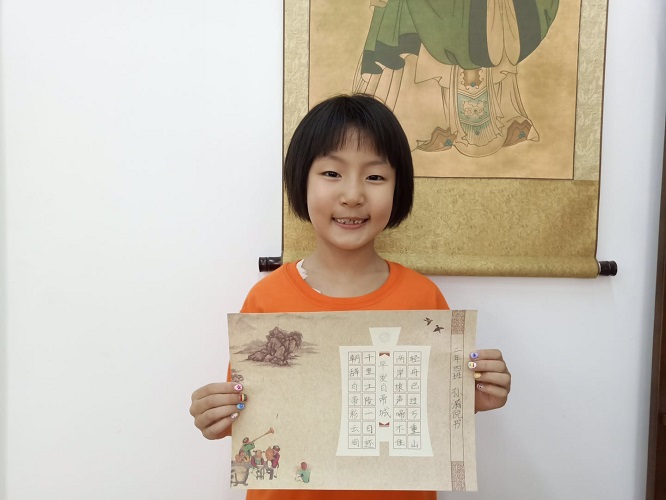 早发白帝城
朝辞白帝彩云间
千里江陵一日还
两岸猿声啼不住
轻舟已过万重山
二年四班